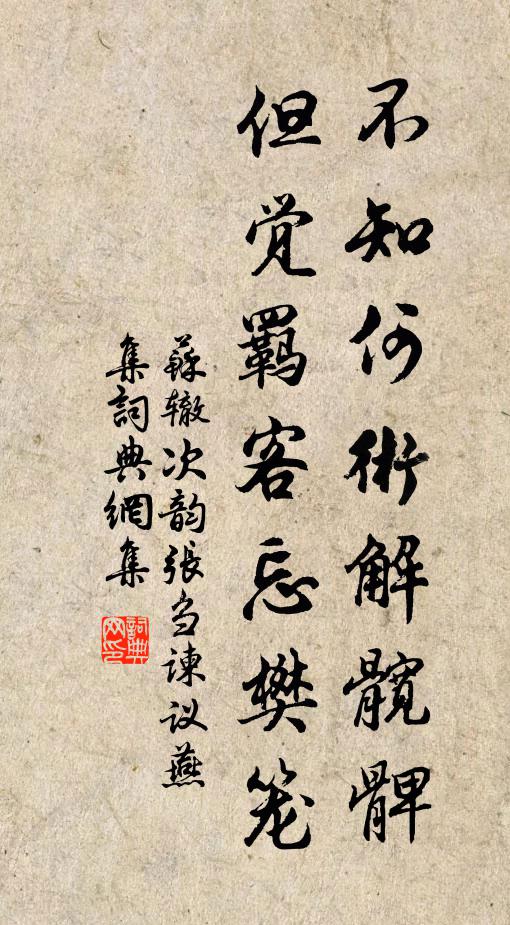 不知何術解髖髀
但觉羈客忘樊笼
蘇辙次韵張刍諫议燕
集詞典網集
詞典
网印